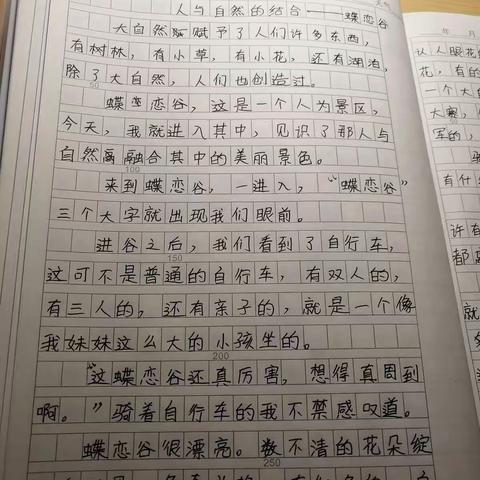 人与自然的结合——蝶恋谷
大自然赋予了人们许多东西,
有树林,有小草,有小花,还有湖泊,
除了大自然,人们也创造过。
50
蝶恋谷,这是一个人为景区,
今天,我就进入其中,见识了那人与
自然融合其中的美丽景色。
100
来到蝶恋谷,一进入,“蝶恋谷”
三个大字就出现我们眼前。
进谷之后,我们看到了自行车,
150
这可不是普通的自行车,有双人的,
有三人的,还有亲子的,就是一个像
我妹妹这么大的小孩坐的。
200
“这蝶恋谷还真厉害,想得真周到
啊。”骑着自行车的我不禁感叹道。
蝶恋谷很漂亮。数不清的花朵绽
250
年 月
认人眼花
花,有的
一个大的
大寨,
军的,
有什
许有
都
就